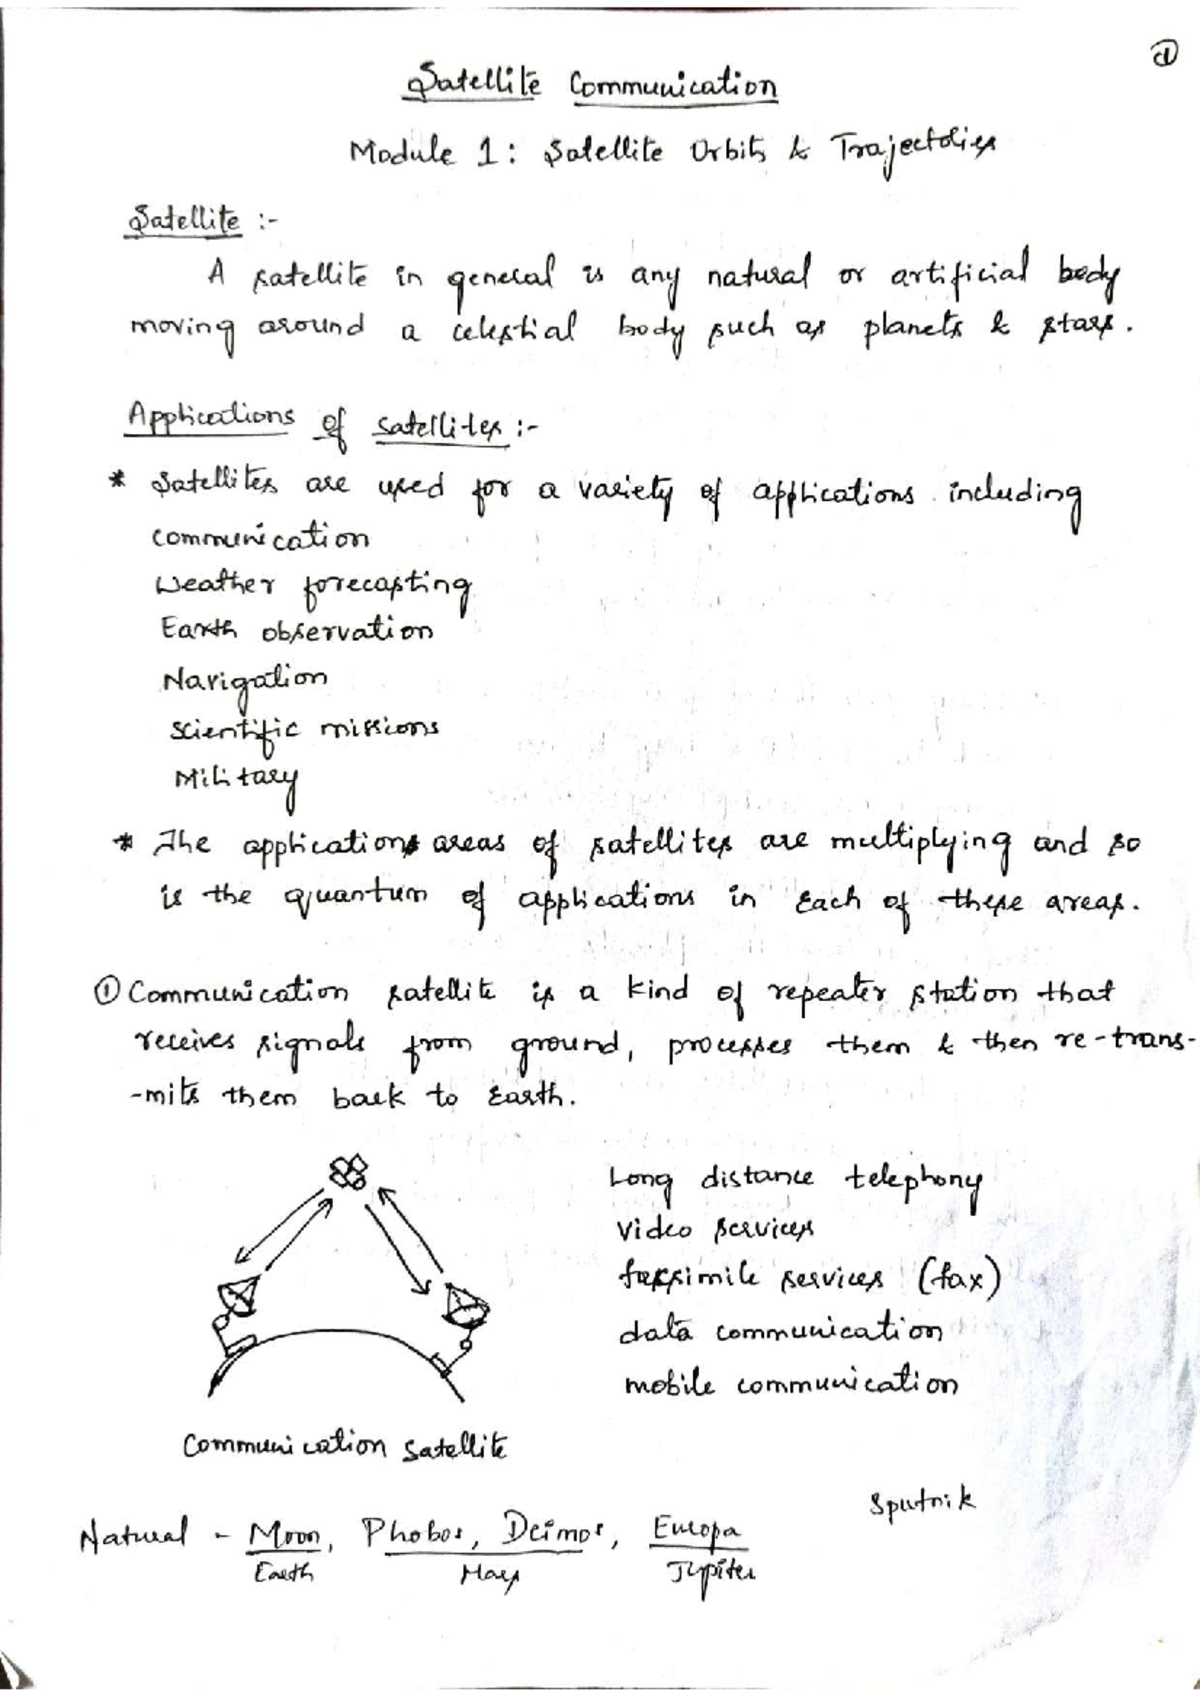 ①
Satellite Communication
Module 1: Satellite Orbits & Trajectories
Satellite :-
A satellite in general is any natural or artificial body
moving around a celestial body such as planets & stars.
Applications of satellites :-
* Satellites are used for a variety of applications including
communication
Weather forecasting
Earth observation
Navigation
Scientific missions
Military
* The applications areas of satellites are multiplying and so
is the quantum of applications in each of these areas.
① Communication satellite is a kind of repeater station that
receives signals from ground, processes them & then re-trans-
-mits them back to Earth.
Long distance telephony
Video services
facsimile services (fax)
data communication
mobile communication
Communication satellite
Sputnik
Natural - Moon, Phobos, Deimos, Europa
Earth Mars Jupiter